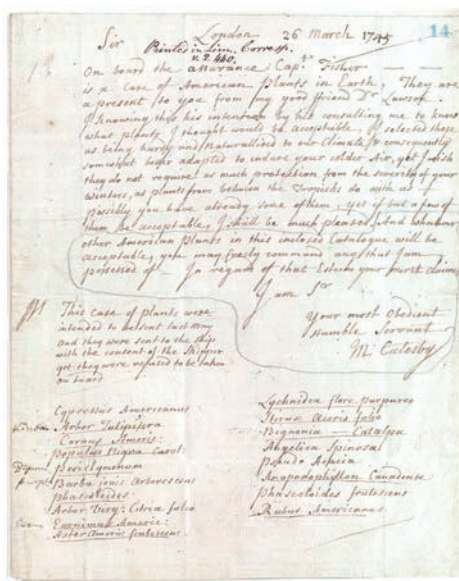 14
London 26 March 1745
Sir
Printed in Linn. Corresp.
v. 2. 440.
On board the assurance Capt. Fisher
is a Case of American Plants in Earth, They are
a present to you from my good friend Dr. Lawson.
I knowing this his intention by his consulting me to know
what plants I thought would be acceptable, I selected these
as being hardy and Naturalized to our Climate, & consequently
somewhat better adapted to endure your colder Air, yet I wish
they do not require as much protection from the severity of your
winters, as plants from between the Tropicks do with us
possibly you have already some of them, yet if but a few of
them be acceptable, I shall be much pleased. And whatever
other American Plants in this inclosed Catalogue will be
acceptable, you may freely command any that I am
possessed of — In regard of that Esteem your merit claims,
I am Sr
Your most Obedient
Humble Servant
M Catesby
This Case of plants were
intended to be sent last May
and they were sent to the ship
with the consent of the Skipper
yet they were refused to be taken
on board
Cypressus Americanus
Arbor Tulipifera
Cornus Americ:
Populus Nigra Carol:
Periclymenum
Barba jovis arborescens
Phaseoloides
Arbor Virg: Citria folio
Euonimus Americ:
Aster Americ frutescens
Lychnidea flore purpureo
Styrax Aceris folio
Bignonia — Catalpa
Angelica Spinosa
Pseudo Acacia
Anapodophyllon Canadense
Phaseoloides frutescens
Rubus Americanus